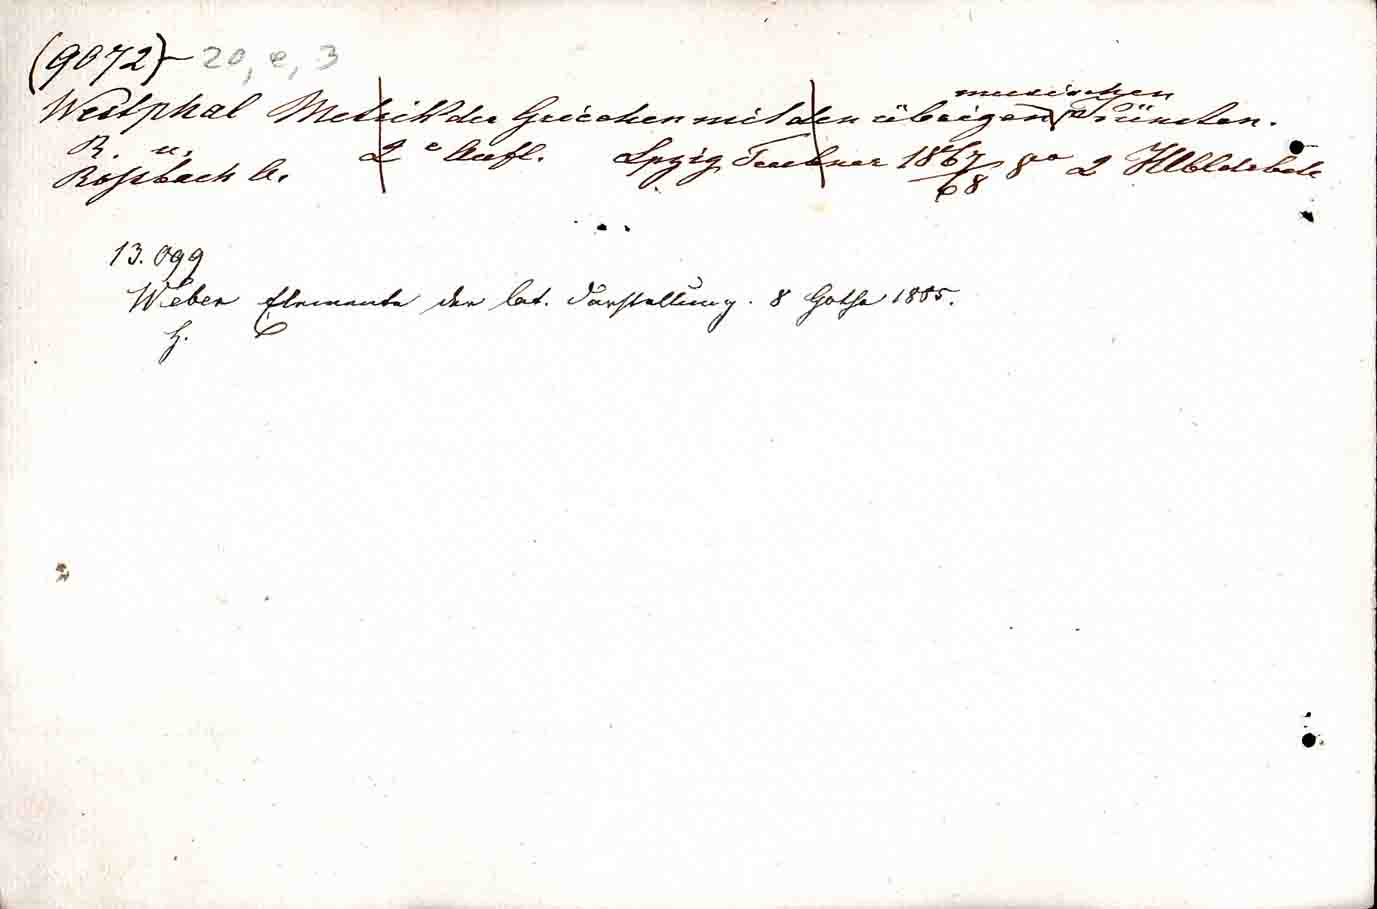 (9072) 20, e, 3
musischen
Westphal Metrik der Griechen mit den übrigen Künsten.
R. u. 2e Aufl. Lpzig Teubner 1867/68 8vo 2 Hlbldrbde
Roßbach A.
13.099
Weber Elemente der lat. Darstellung. 8 Gotha 1885.
H.